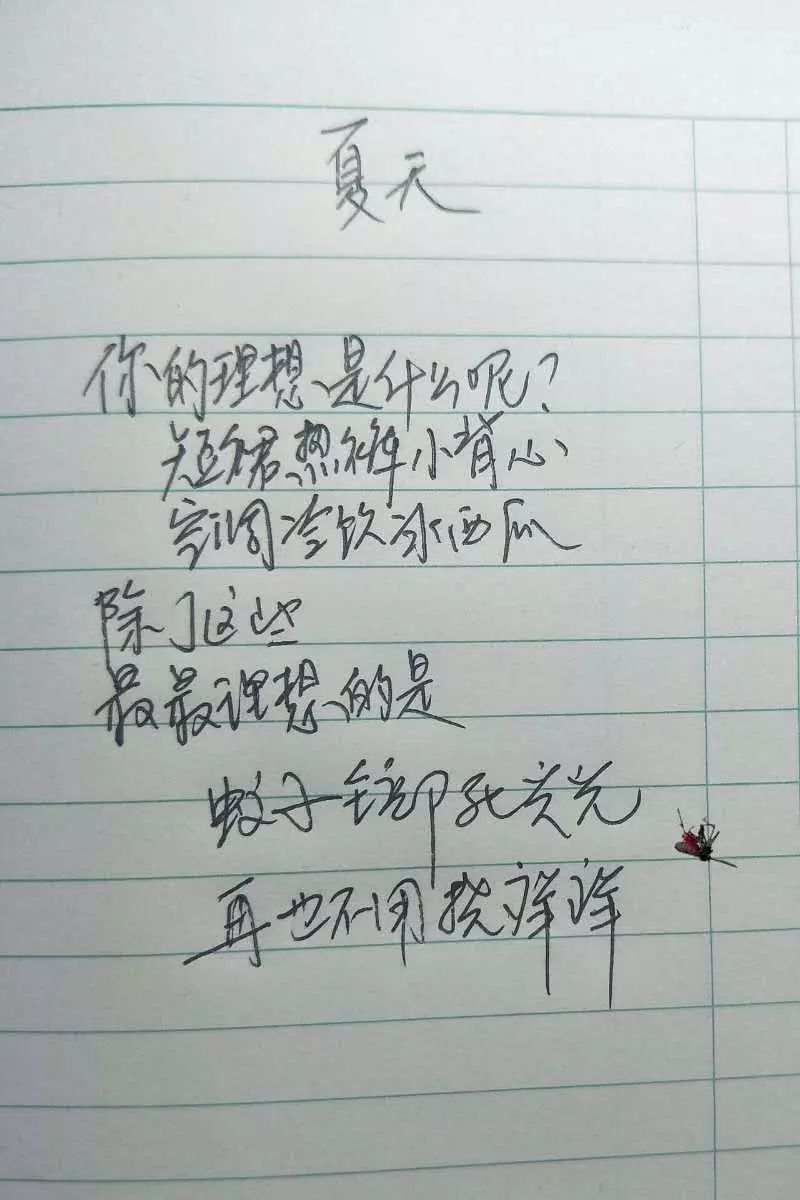 夏天
你的理想是什么呢?
短裙热裤小背心
空调冷饮冰西瓜
除了这些
最最理想的是
蚊子全部死光光
再也不用挠痒痒